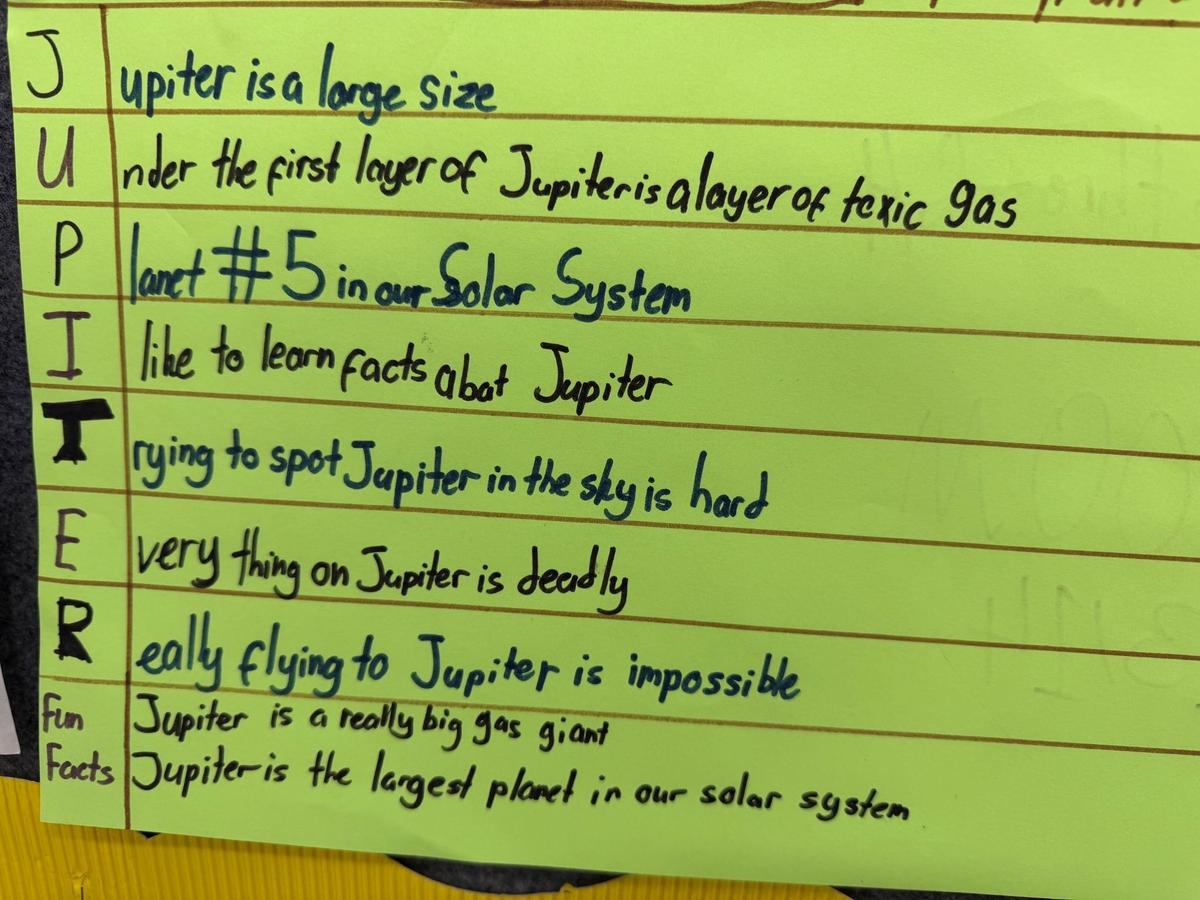 J upiter is a large size
U nder the first layer of Jupiter is a layer of toxic gas
P lanet #5 in our Solar System
I like to learn facts abat Jupiter
T rying to spot Jupiter in the sky is hard
E very thing on Jupiter is deadly
R eally flying to Jupiter is impossible
Fun Jupiter is a really big gas giant
Facts Jupiter is the largest planet in our solar system